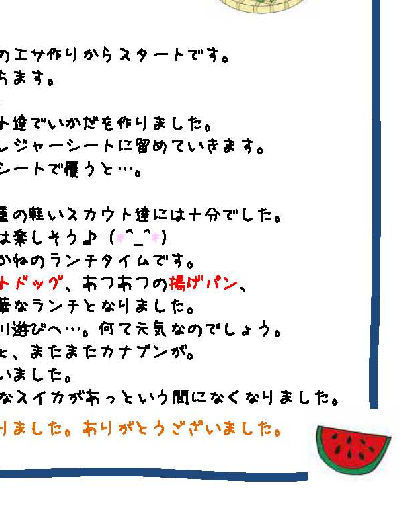 のエサ作りからスタートです。
ちます。
ト達でいかだを作りました。
レジャーシートに留めていきます。
シートで覆うと…。
量の軽いスカウト達には十分でした。
は楽しそう♪（*^_^*）
かねのランチタイムです。
トドッグ、あつあつの揚げパン、
華なランチとなりました。
川遊びへ…。何て元気なのでしょう。
と、またまたカナブンが。
いました。
なスイカがあっという間になくなりました。
りました。ありがとうございました。